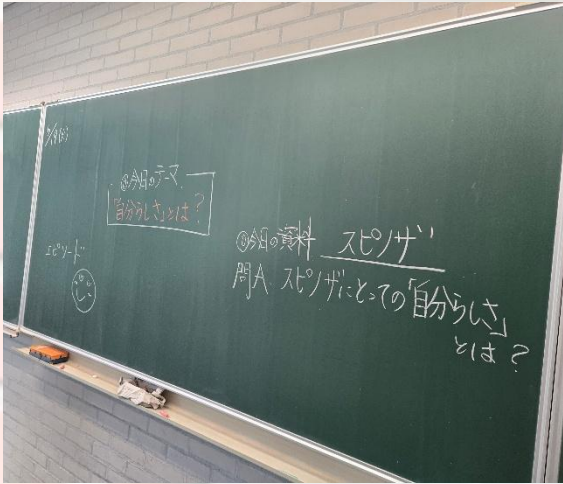 ◎今日のテーマ
「自分らしさ」とは?
エピソード
◎今日の資料 スピノザ
問A スピノザにとっての「自分らしさ」
とは?